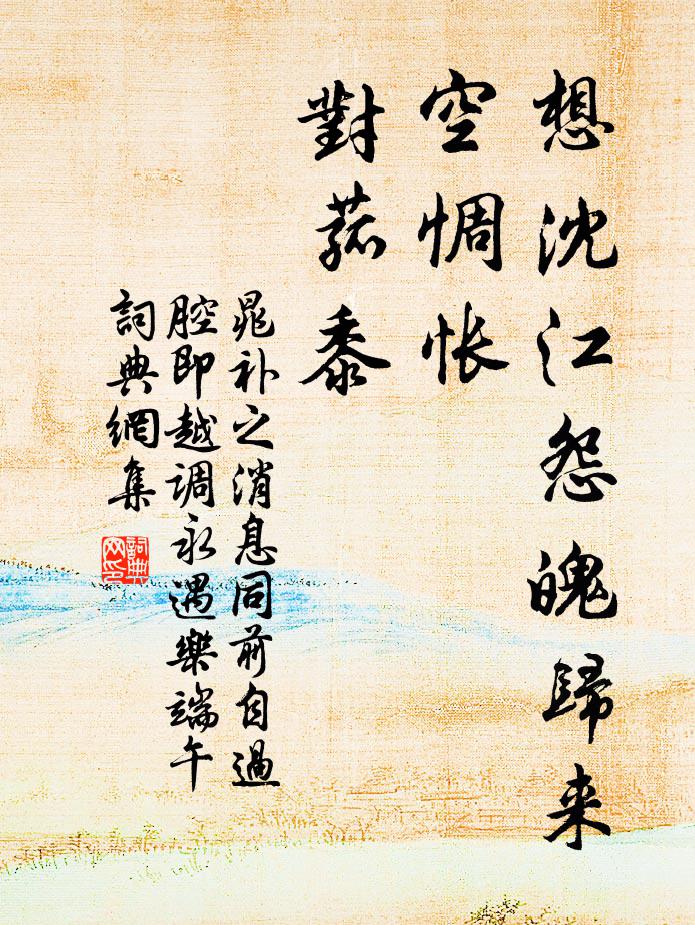 想沈江怨魄歸来
空惆怅
對菰黍
晁补之消息同前自過
腔即越调永遇樂端午
詞典網集
詞典
网印